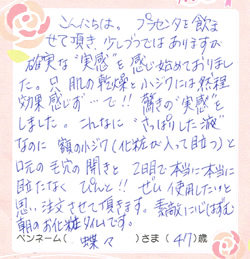 こんにちは。プラセンタを飲ま
せて頂き、少しづつではありますが
確実な"実感"を感じ始めておりまし
た。只、肌の乾燥と小ジワには然程
効果感じず…で!! 驚きの"実感"を
しました。こんなに"さっぱりした液"
なのに 額の小ジワ(化粧が入って目立つ)と
口元の毛穴の開きと 2日目で本当に本当に
目立たなく ぴぃんと!! ぜひ使用したいと
思い、注文させて頂きます。素敵に心はずむ
朝のお化粧タイムです。
ペンネーム( 蝶々 )さま(47)歳